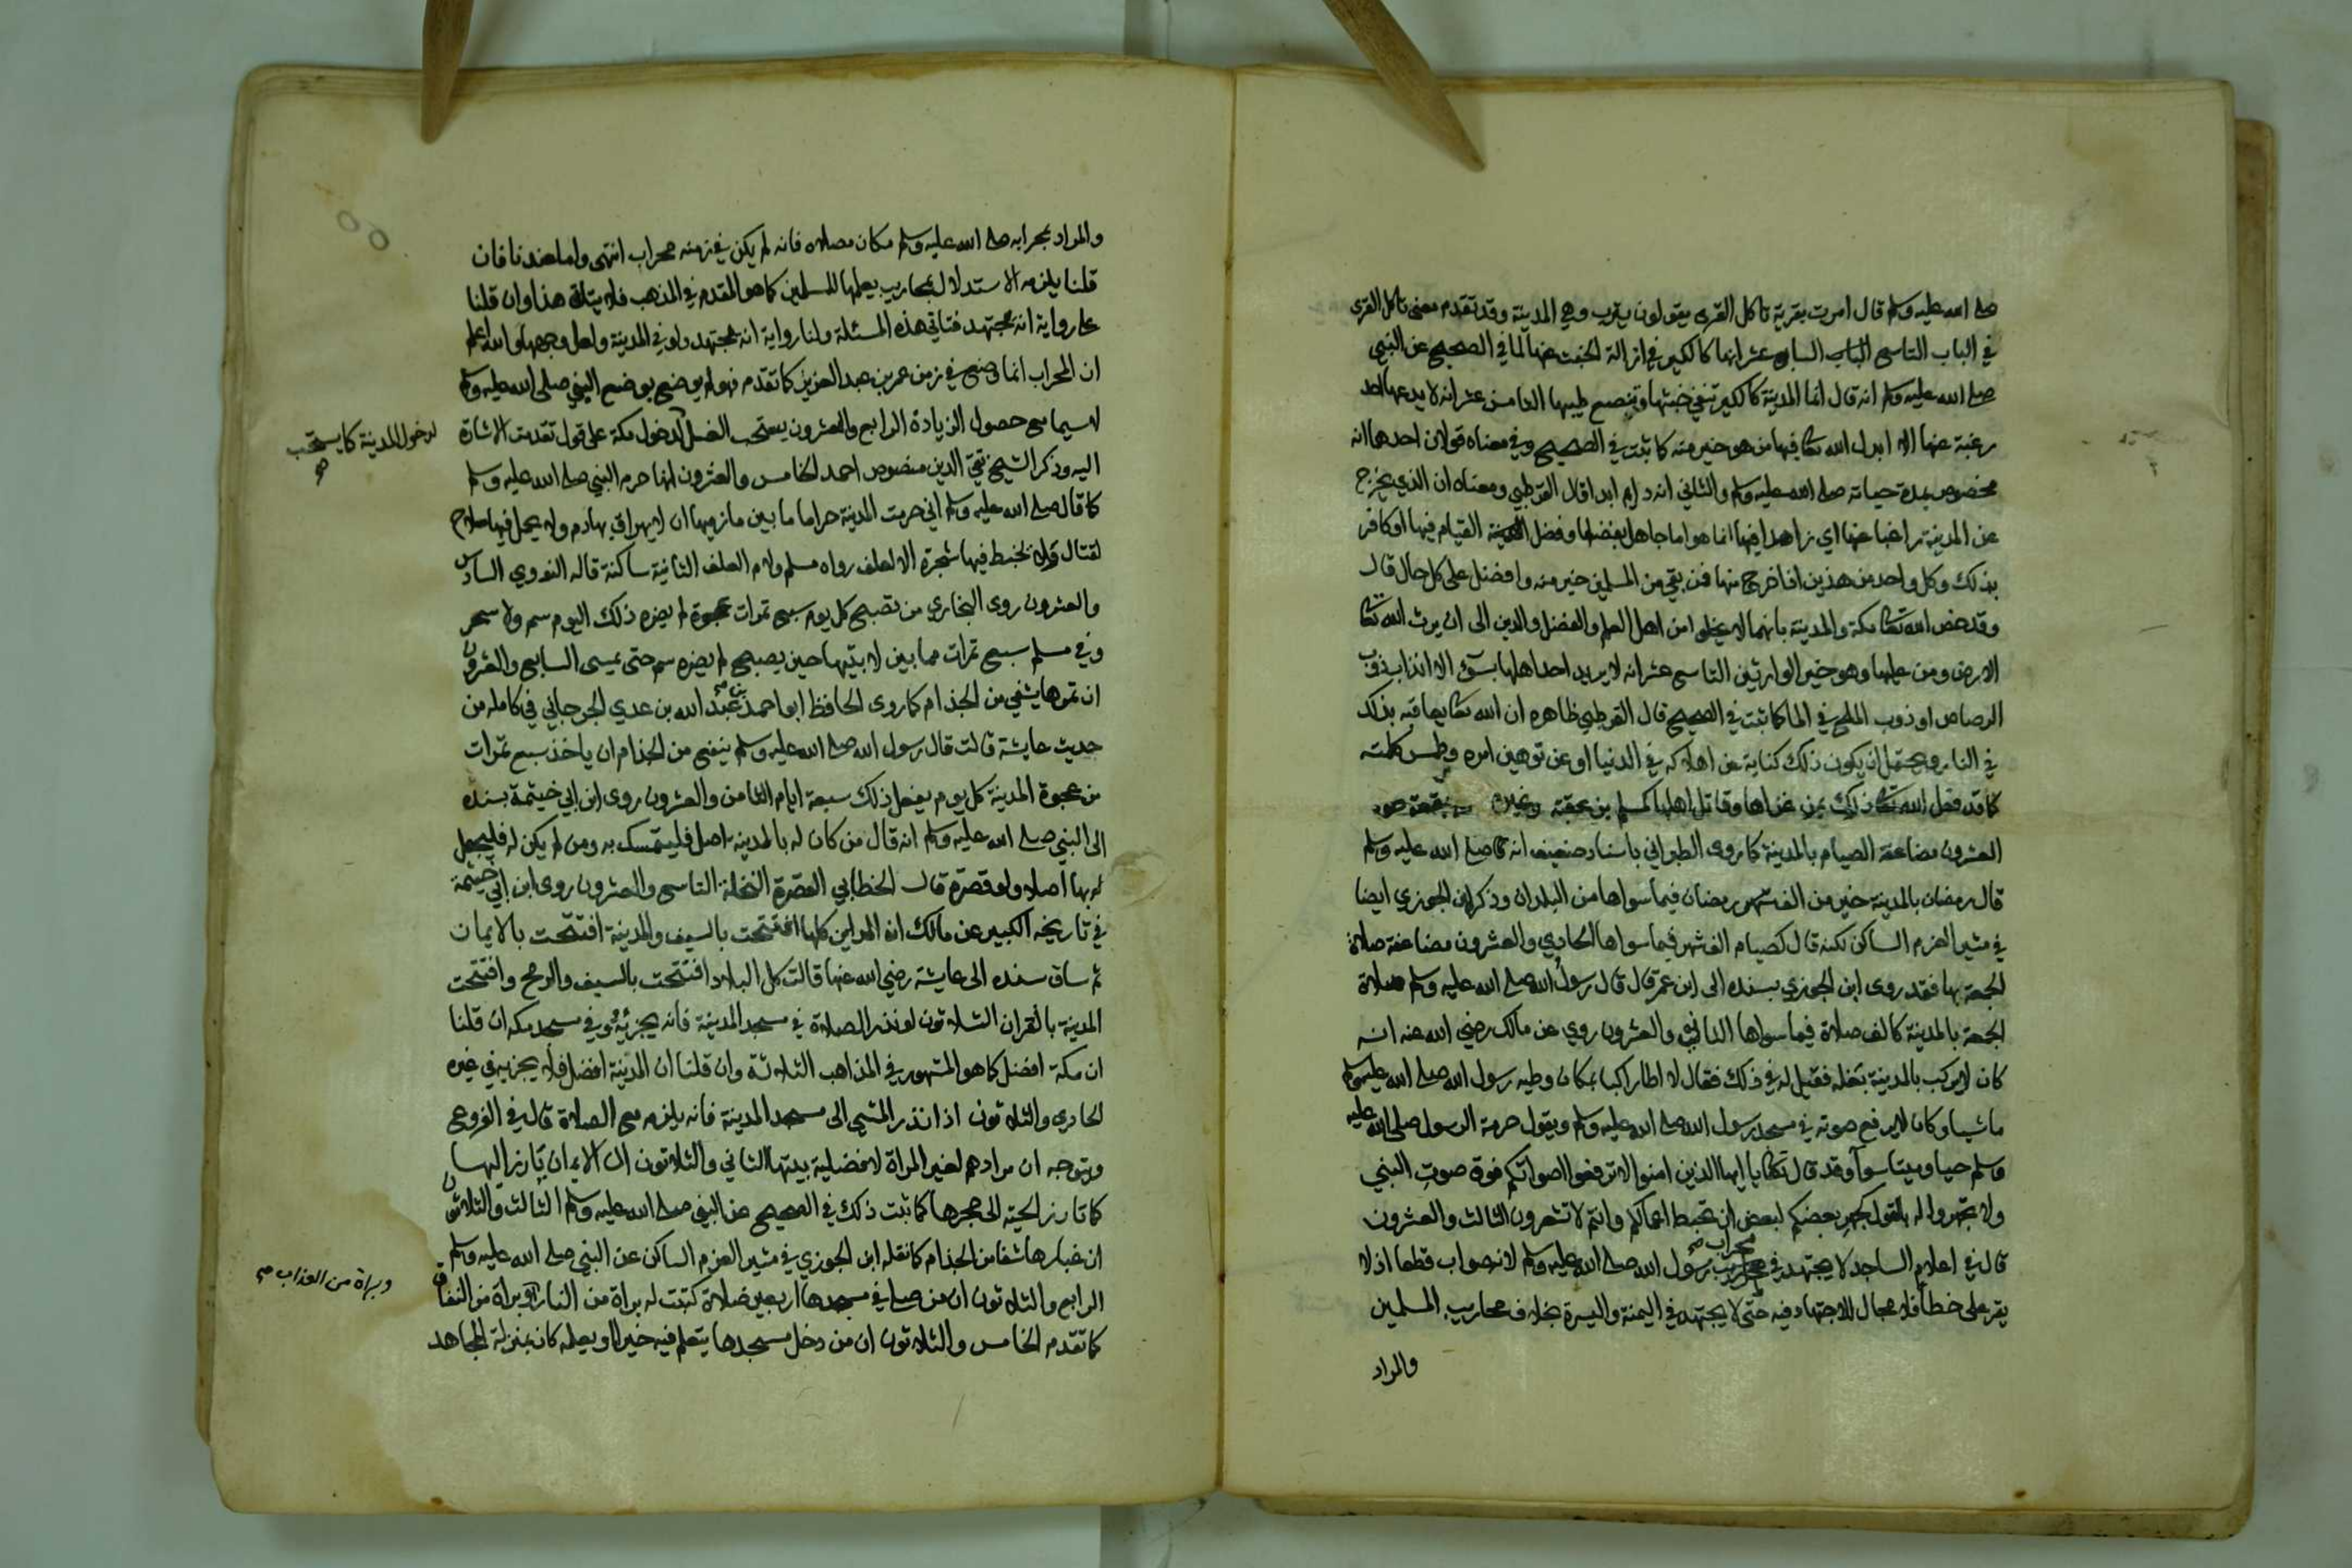 صلى الله عليه وسلم قال امرت بقرية تاكل القرى يقولون يثرب وهي المدينة وقد تقدم معنى تاكل القرى
في الباب التاسع السابع عشر انها كالكير في ازالة الخبث عنها لما في الصحيح عن النبي
صلى الله عليه وسلم انه قال انما المدينة كالكير تنفي خبثها وتنصع طيبها الثامن عشر انه لا يدعها احد
رغبة عنها الا ابدل الله تعالى فيها من هو خير منه كما ثبت في الصحيح وفي معناه قولان احدهما انه
مخصوص بمدة حياته صلى الله عليه وسلم والثاني انه دايم ابدا قال القرطبي ومعناه ان الذي يخرج
عن المدينة راغبا عنها اي زاهدا فيها انما هو اما جاهل بفضلها وفضل القيام فيها او كافر
بذلك وكل واحد من هذين اذا خرج منها فمن بقي من المسلمين خير منه وافضل على كل حال قال
وقد خص الله تعالى مكة والمدينة بانهما لا يخلوا من اهل العلم والفضل والدين الى ان يرث الله تعالى
الارض ومن عليها وهو خير الوارثين التاسع عشر انه لا يريد احد اهلها بسوء الا اذابه ذوب
الرصاص او ذوب الملح في الما كما ثبت في الصحيح قال القرطبي ظاهره ان الله تعالى يعاقبه بذلك
في النار ويحتمل ان يكون ذلك كناية عن اهلاكه في الدنيا او عن توهين امره وطمس كلمته
كما قد فعل الله تعالى ذلك بمن غزاها وقاتل اهلها كمسلم بن عقبة وغيره
العشرون مضاعفة الصيام بالمدينة كما روى الطبراني باسناد ضعيف انه صلى الله عليه وسلم
قال رمضان بالمدينة خير من الف شهر رمضان فيما سواها من البلدان وذكر ابن الجوزي ايضا
في مثير العزم الساكن لكنه قال كصيام الف شهر فيما سواها الحادي والعشرون مضاعفة صلاة
الجمعة بها فقد روى ابن الجوزي بسنده الى ابن عمر قال قال رسول الله صلى الله عليه وسلم صلاة
الجمعة بالمدينة كالف صلاة فيما سواها الثاني والعشرون روي عن مالك رضي الله عنه انه
كان لا يركب بالمدينة بغله فقيل له في ذلك فقال لا اطا راكبا بمكان وطيه رسول الله صلى الله عليه وسلم
ماشيا وكان لا يرفع صوته في مسجد رسول الله صلى الله عليه وسلم ويقول حرمة الرسول صلى الله عليه
وسلم حيا وميتا سوآ وقد قال تعالى يا ايها الذين امنوا لا ترفعوا اصواتكم فوق صوت النبي
ولا تجهروا له بالقول كجهر بعضكم لبعض ان تحبط اعمالكم وانتم لا تشعرون الثالث والعشرون
قال في اعلام الساجد لا يجتهد في محراب رسول الله صلى الله عليه وسلم لانه صواب قطعا اذ لا
يقر على خطأ فلا مجال للاجتهاد فيه حتى لا يجتهد في اليمنة واليسرة بخلاف محاريب المسلمين
والمراد
والمراد بمحرابه صلى الله عليه وسلم مكان مصلاه فانه لم يكن في زمنه محراب انتهى واما عندنا فان
قلنا يلزمه الاستدلال بمحاريب يعملها المسلمين كما هو المقدم في المذهب فلا يتاتى هذا وان قلنا
على رواية انه يجتهد فتاتي هذه المسئلة ولنا رواية انه يجتهد ولو في المدينة ولعل وجهها والله اعلم
ان المحراب انما وضع في زمن عمر بن عبد العزيز كما تقدم فهو لم يوضع بوضع النبي صلى الله عليه وسلم
لا سيما مع حصول الزيادة الرابع والعشرون يستحب الغسل لدخول مكة على قول تقدمت الاشارة
لدخول المدينة كما يستحب صح
اليه وذكر الشيخ تقي الدين منصوص احمد الخامس والعشرون انها حرم النبي صلى الله عليه وسلم
كما قال صلى الله عليه وسلم اني حرمت المدينة حراما ما بين مازميها ان لا يهراق بها دم ولا يحمل فيها سلاح
لقتال ولا يخبط فيها شجرة الا لعلف رواه مسلم ولام العلف الثانية ساكنة قاله النووي السادس
والعشرون روى البخاري من تصبح كل يوم سبع تمرات عجوة لم يضره ذلك اليوم سم ولا سحر
وفي مسلم سبع تمرات مما بين لابتيها حين يصبح لم يضره سم حتى يمسى السابع والعشرون
ان تمرها يشفي من الجذام كما روى الحافظ ابو احمد عبد الله بن عدي الجرجاني في كامله من
حديث عايشة قالت قال رسول الله صلى الله عليه وسلم ينفع من الجذام ان ياخذ سبع تمرات
من عجوة المدينة كل يوم يفعل ذلك سبعة ايام الثامن والعشرون روى ابن ابي خيثمة بسنده
الى النبي صلى الله عليه وسلم انه قال من كان له بالمدينة اصل فليتمسك به ومن لم يكن له فليجعل
له بها اصلا ولو قصرة قال الخطابي القصرة النخلة التاسع والعشرون روى ابن ابي خيثمة
في تاريخه الكبير عن مالك ان المداين كلها افتتحت بالسيف والمدينة افتتحت بالايمان
ثم ساق سنده الى عايشة رضي الله عنها قالت كل البلاد افتتحت بالسيف والرمح وافتتحت
المدينة بالقران الثلاثون لو نذر الصلاة في مسجد المدينة فانه يجزئه في مسجد مكه ان قلنا
ان مكة افضل كما هو المشهور في المذاهب الثلاثة وان قلنا ان المدينة افضل فلا يجزيه في غيره
الحادي والثلاثون اذا نذر المشي الى مسجد المدينة فانه يلزمه مع الصلاة قال في الفروع
ويتوجه ان مرادهم لغير المراة لافضلية بيتها الثاني والثلاثون ان الايمان يارز اليها
كما تارز الحية الى جحرها كما ثبت ذلك في الصحيح عن النبي صلى الله عليه وسلم الثالث والثلاثون
ان غبارها شفا من الجذام كما نقله ابن الجوزي في مثير العزم الساكن عن النبي صلى الله عليه وسلم
الرابع والثلاثون ان من صلى في مسجدها اربعين صلاة كتبت له براة من النار وبراة من النفاق
وبراة من العذاب صح
كما تقدم الخامس والثلاثون ان من دخل مسجدها يتعلم فيه خيرا او يعلمه كان بمنزلة المجاهد